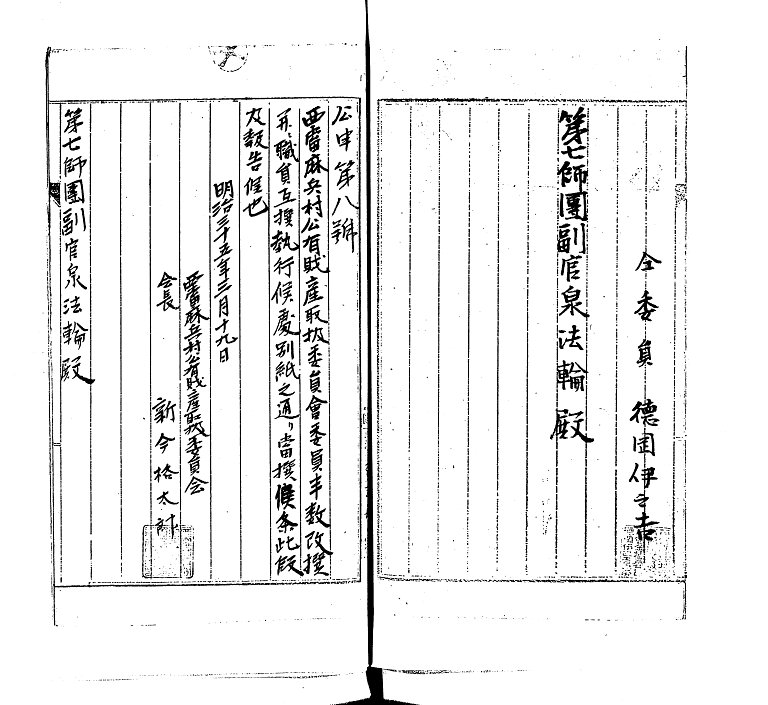 仝委員 德田伊之吉
第七師團副官泉法輪殿
公申第八號
西當麻兵村公有財產取扱委員會委員半数改撰
並ニ職員互撰執行候處別紙之通リ當撰候条此段
及報告候也
明治三十五年三月十九日
西當麻兵村公有財產取扱委員会
会長 新今格太郎
第七師團副官泉法輪殿